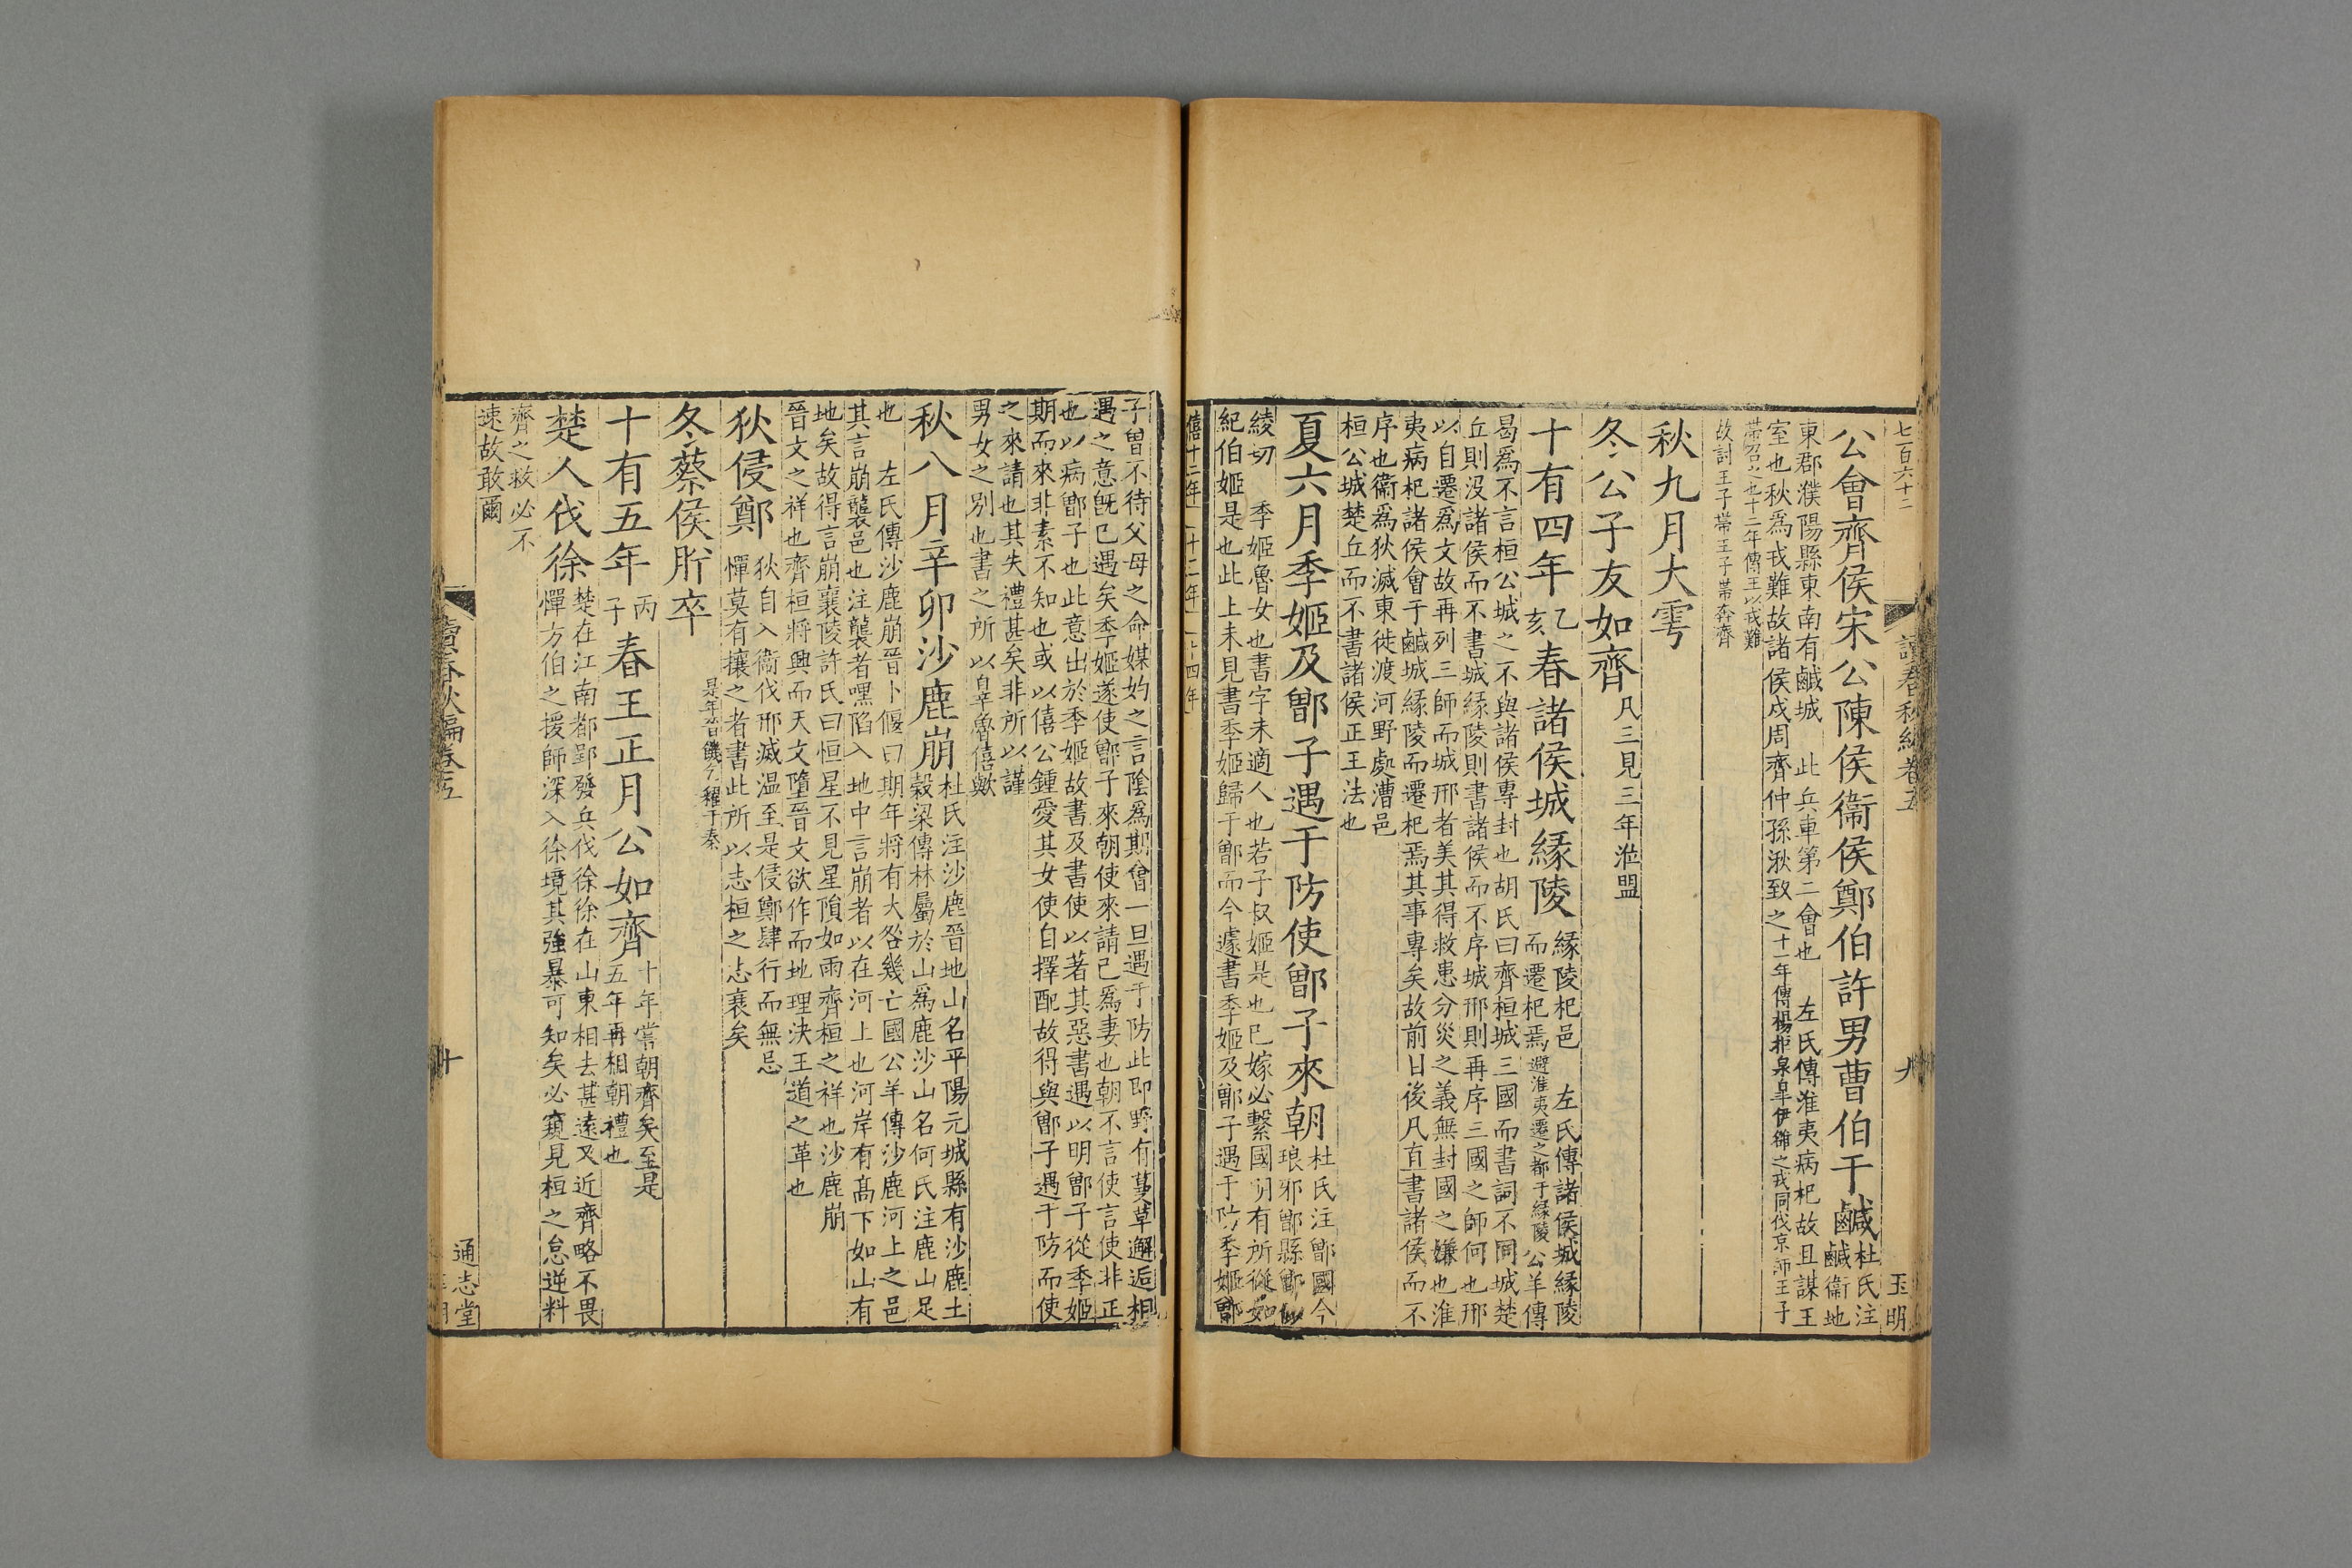 七百六十二
讀春秋編卷五
九
玉明
公會齊侯宋公陳侯衞侯鄭伯許男曹伯于鹹杜氏注
鹹衞地
東郡濮陽縣東南有鹹城　此兵車第二會也　左氏傳淮夷病杞故且謀王
室也秋爲戎難故諸侯戍周齊仲孫湫致之十一年傳楊拒泉皋伊雒之戎同伐京師王子
帶召之也十二年傳王以戎難
故討王子帶王子帶奔齊
秋九月大雩
冬公子友如齊凡三見三年涖盟
十有四年乙亥春諸侯城緣陵緣陵杞邑　左氏傳諸侯城緣陵
而遷杞焉避淮夷遷之都于緣陵公羊傳
曷爲不言桓公城之不與諸侯專封也胡氏曰齊桓城三國而書詞不同城楚
丘則沒諸侯而不書城緣陵則書諸侯而不序城邢則再序三國之師何也邢
以自遷爲文故再列三師而城邢者美其得救患分災之義無封國之嫌也淮
夷病杞諸侯會于鹹城緣陵而遷杞焉其事專矣故前日後凡直書諸侯而不
序也衞爲狄滅東徙渡河野處漕邑
桓公城楚丘而不書諸侯正王法也
夏六月季姬及鄫子遇于防使鄫子來朝杜氏注鄫國今
琅邪鄫縣鄫
綾切　季姬魯女也書字未適人也若子叔姬是也已嫁必繫國明有所從如
紀伯姬是也此上未見書季姬歸于鄫而今遽書季姬及鄫子遇于防季姬鄫
僖十二年　十三年　十四年
子曾不待父母之命媒妁之言陰爲期會一旦遇于防此即野有蔓草邂逅相
遇之意旣已遇矣季姬遂使鄫子來朝使來請已爲妻也朝不言使言使非正
也以病鄫子也此意出於季姬故書及書使以著其惡書遇以明鄫子從季姬
期而來非素不知也或以僖公鍾愛其女使自擇配故得與鄫子遇于防而使
之來請也其失禮甚矣非所以謹
男女之別也書之所以自卒魯僖歟
秋八月辛卯沙鹿崩杜氏注沙鹿晉地山名平陽元城縣有沙鹿土
穀梁傳林屬於山爲鹿沙山名何氏注鹿山足
也　左氏傳沙鹿崩晉卜偃曰期年將有大咎幾亡國公羊傳沙鹿河上之邑
其言崩襲邑也注襲者嘿陷入地中言崩者以在河上也河岸有高下如山有
地矣故得言崩襄陵許氏曰恒星不見星隕如雨齊桓之祥也沙鹿崩
晉文之祥也齊桓將興而天文墮晉文欲作而地理決王道之革也
狄侵鄭狄自入衞伐邢滅溫至是侵鄭肆行而無忌
憚莫有攘之者書此所以志桓之志衰矣
是年晉饑乞糴于秦
冬蔡侯肸卒
十有五年丙子春王正月公如齊十年嘗朝齊矣至是
五年再相朝禮也
楚人伐徐楚在江南都郢發兵伐徐徐在山東相去甚遠又近齊略不畏
憚方伯之援師深入徐境其強暴可知矣必窺見桓之怠逆料
齊之救必不
速故敢爾
讀春秋編卷五
十
通志堂